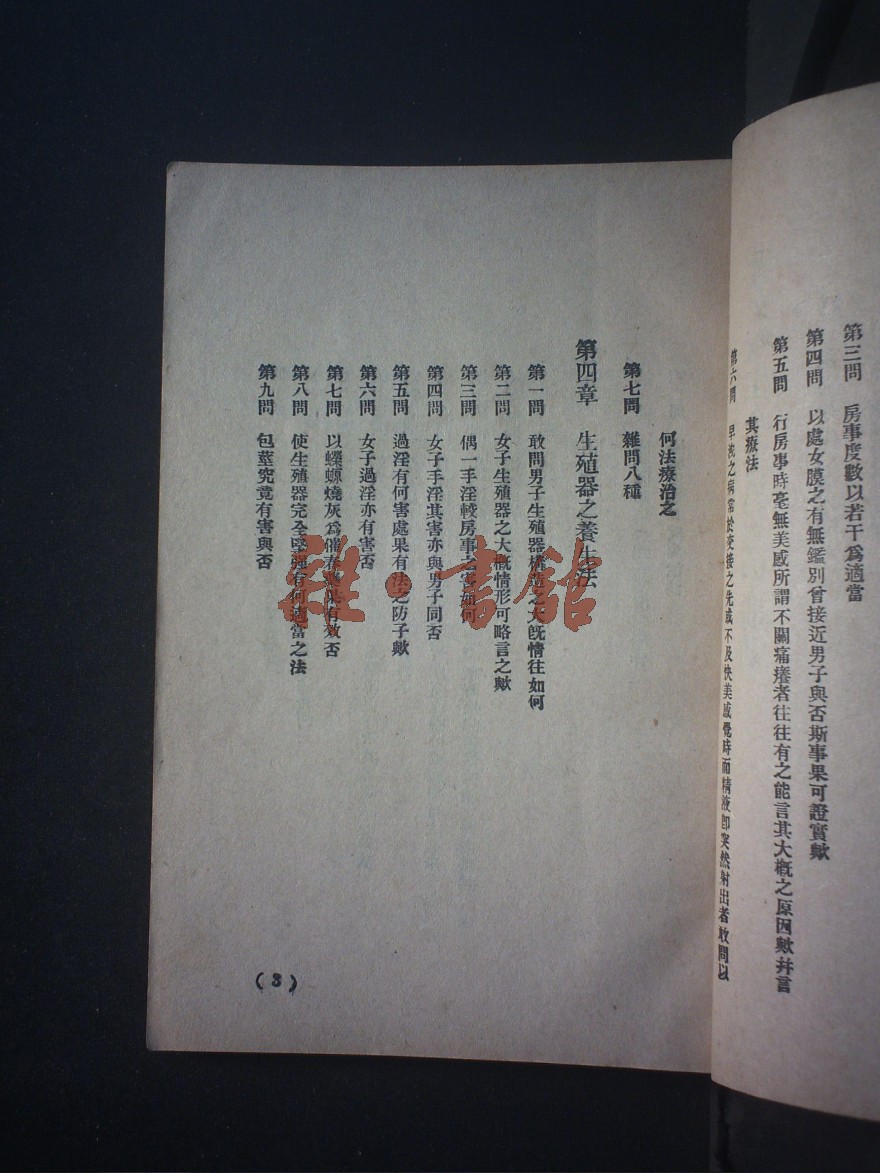 第三問　房事度數以若干爲適當
第四問　以處女膜之有無鑑別曾接近男子與否斯事果可證實歟
第五問　行房事時毫無美感所謂不關痛癢者往往有之能言其大概之原因歟幷言
其療法
第六問　早洩之病常於交接之先或不及快美感覺時而精液卽突然射出者敢問以
何法療治之
第七問　雜問八種
第四章　生殖器之養生法
第一問　敢問男子生殖器構造之大旣情往如何
第二問　女子生殖器之大概情形可略言之歟
第三問　偶一手淫較房事之害如何
第四問　女子手淫其害亦與男子同否
第五問　過淫有何害處果有法之防子歟
第六問　女子過淫亦有害否
第七問　以蠑螈燒灰爲催春藥果有效否
第八問　使生殖器完全堅强有何適當之法
第九問　包莖究竟有害與否
(3)
雜·書館